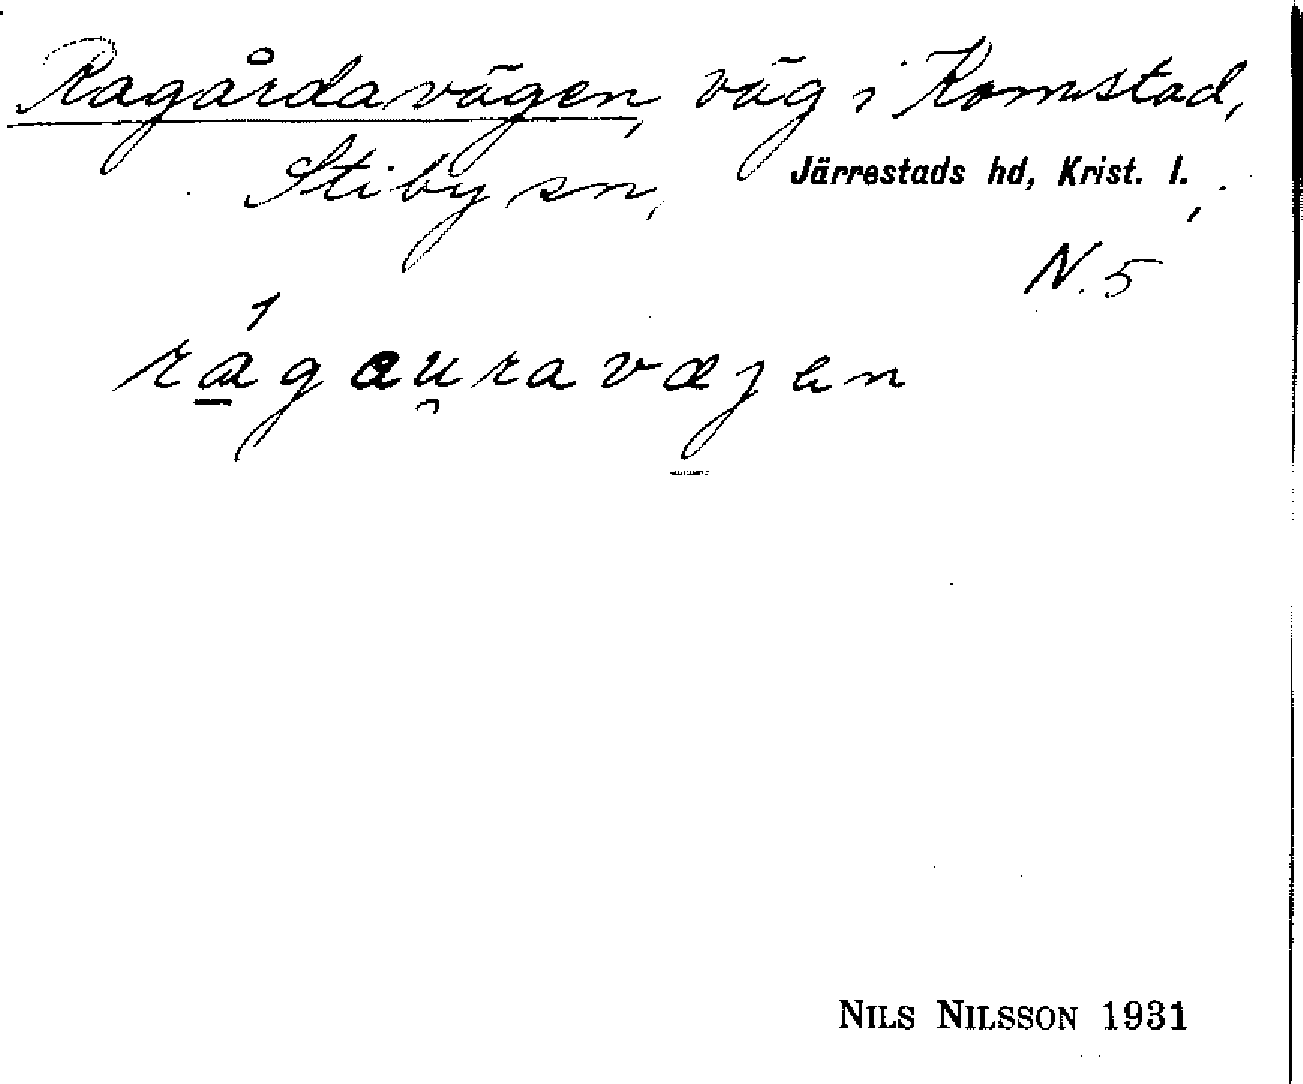 Ragårdavägen, väg i Komstad,
Stiby sn, Järrestads hd, Krist. l.,
N. 5
rágau̯ravæjen
NILS NILSSON 1931